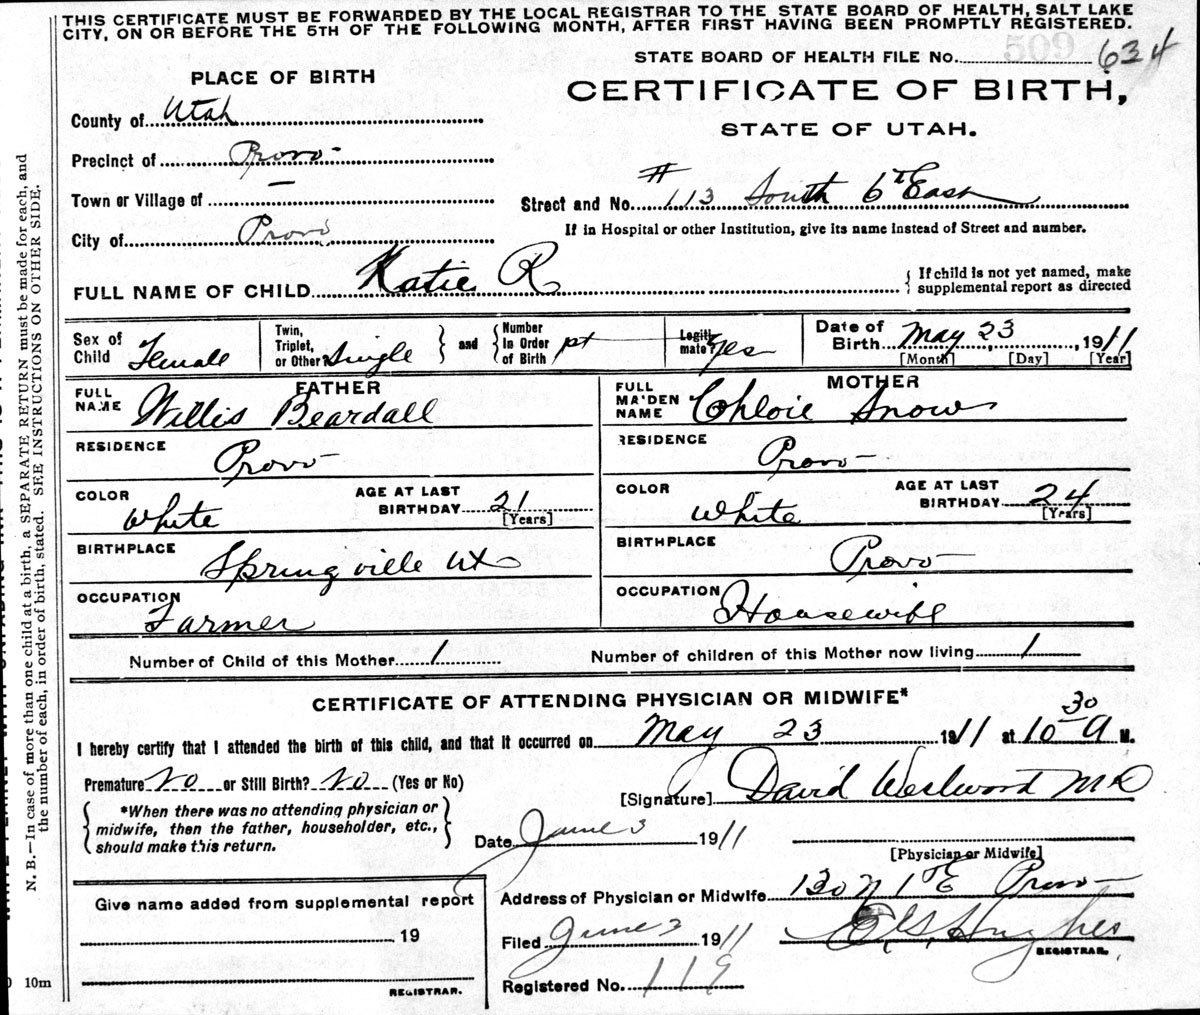 THIS CERTIFICATE MUST BE FORWARDED BY THE LOCAL REGISTRAR TO THE STATE BOARD OF HEALTH, SALT LAKE
CITY, ON OR BEFORE THE 5TH OF THE FOLLOWING MONTH, AFTER FIRST HAVING BEEN PROMPTLY REGISTERED.
509
STATE BOARD OF HEALTH FILE No. 634
PLACE OF BIRTH
CERTIFICATE OF BIRTH,
STATE OF UTAH.
County of Utah
Precinct of Provo
Town or Village of —
Street and No. #113 South 6th East
City of Provo
If in Hospital or other Institution, give its name instead of Street and number.
FULL NAME OF CHILD Katie R
If child is not yet named, make
supplemental report as directed
Sex of Child Female
Twin, Triplet, or Other Single
and
Number In Order of Birth
Legiti mate? Yes
Date of Birth May 23, 1911
[Month] [Day] [Year]
FATHER
FULL NAME Willis Beardall
MOTHER
FULL MAIDEN NAME Chloie Snow
RESIDENCE Provo
RESIDENCE Provo
COLOR White
AGE AT LAST BIRTHDAY 21 [Years]
COLOR White
AGE AT LAST BIRTHDAY 24 [Years]
BIRTHPLACE Springville Ut
BIRTHPLACE Provo
OCCUPATION Farmer
OCCUPATION Housewife
Number of Child of this Mother 1
Number of children of this Mother now living 1
CERTIFICATE OF ATTENDING PHYSICIAN OR MIDWIFE*
I hereby certify that I attended the birth of this child, and that it occurred on May 23 1911 at 10 30 A M.
Premature No or Still Birth? No (Yes or No)
[Signature] David Westwood MD
*When there was no attending physician or
midwife, then the father, householder, etc.,
should make this return.
Date June 3 1911
[Physician or Midwife]
Address of Physician or Midwife 130 N 1st E Provo
Give name added from supplemental report
19
REGISTRAR.
Filed June 3 1911
Hughes
REGISTRAR.
Registered No. 119
N. B.—In case of more than one child at a birth, a SEPARATE RETURN must be made for each, and
the number of each, in order of birth, stated. SEE INSTRUCTIONS ON OTHER SIDE.
10m